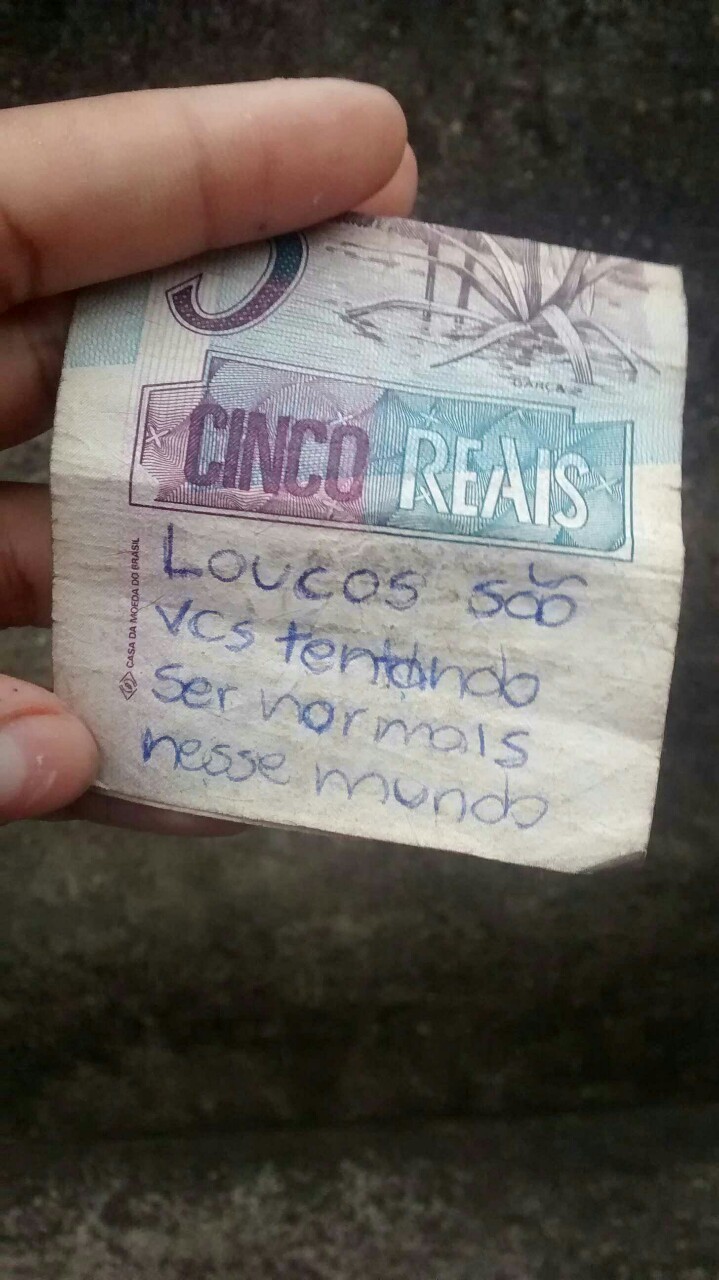 5
GARÇA
CINCO REAIS
CASA DA MOEDA DO BRASIL
Loucos são
vcs tentando
ser normais
nesse mundo